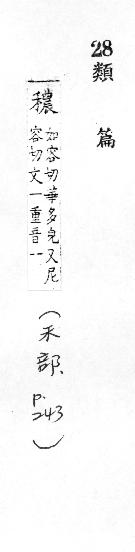 28類篇
穠 如容切華多皃又尼
容切文一重音一
(禾部、p.243)